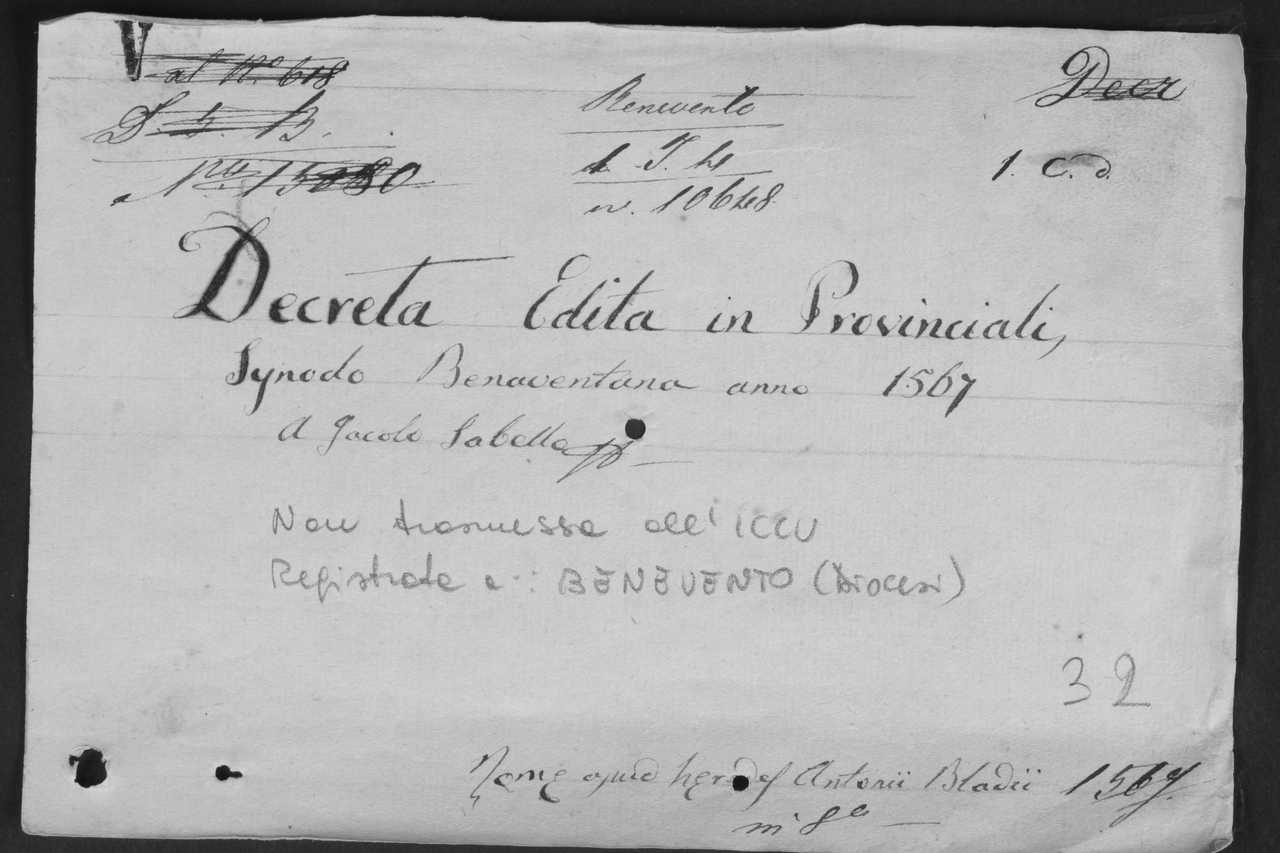 al N.º 618
S. 5. B.
N.º 15080
Benevento
1. T. 4
n. 10648
Decr
1. C. d.
Decreta Edita in Provinciali,
Synodo Benaventana anno 1567
A Jacobo Sabello
Non trasmessa all' ICCU
Registrata a: BENEVENTO (Diocesi)
32
Rome apud heredes Antonii Bladii 1567.
in 8º